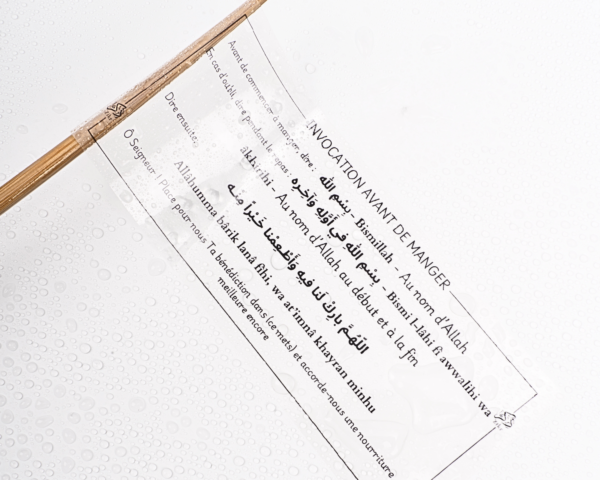 INVOCATION AVANT DE MANGER
Avant de commencer à manger, dire : بِسْمِ اللَّهِ - Bismillah - Au nom d'Allah
En cas d'oubli, dire pendant le repas : بِسْمِ اللَّهِ فِي أَوَّلِهِ وَآخِرِهِ - Bismi l-lâhi fi awwalihi wa
âkhirihi - Au nom d'Allah au début et à la fin
Dire ensuite,
اللَّهُمَّ بَارِكْ لَنَا فِيهِ وَأَطْعِمْنَا خَيْرًا مِنْهُ
Allâhumma bârik lanâ fîhi, wa ar'imnâ khayran minhu
Ô Seigneur ! Place pour nous Ta bénédiction dans (ce mets) et accorde-nous une nourriture
meilleure encore